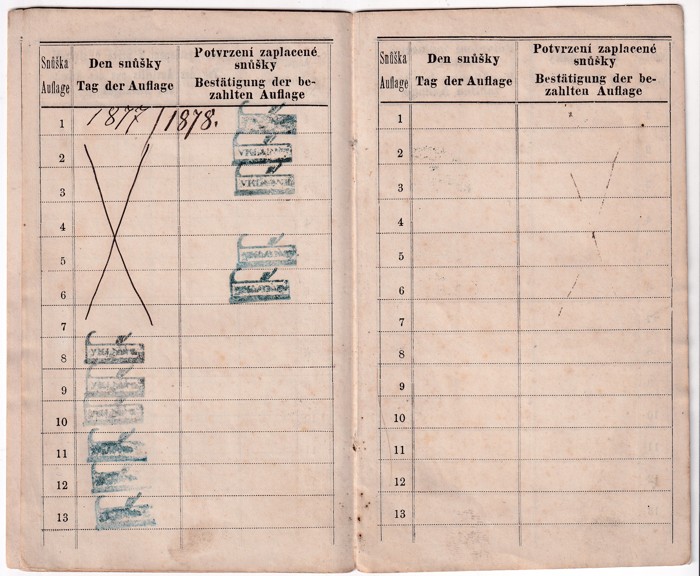 Snůška
Auflage
Den snůšky
Tag der Auflage
Potvrzení zaplacené
snůšky
Bestätigung der be-
zahlten Auflage
1
1877/1878.
2
3
4
5
6
7
8
9
10
11
12
13
Snůška
Auflage
Den snůšky
Tag der Auflage
Potvrzení zaplacené
snůšky
Bestätigung der be-
zahlten Auflage
1
2
3
4
5
6
7
8
9
10
11
12
13